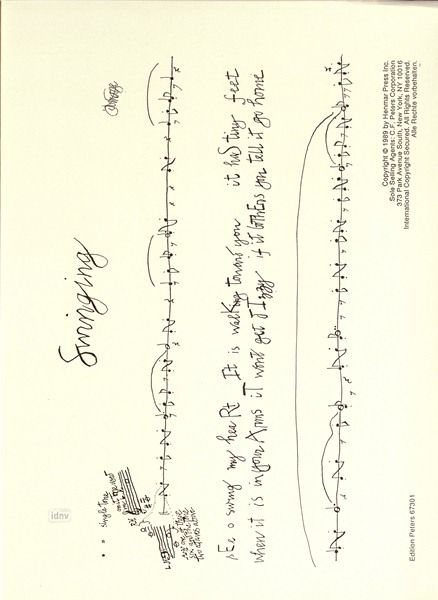 Swinging
single tone
two octaves above
sEE o swing my heaRt It is walKing toward you it haS tiny feet
when it is in your Arms iT won't get dIzzy if it botHers you tell it go home
Copyright © 1989 by Henmar Press Inc.
Sole Selling Agents: C.F. Peters Corporation
373 Park Avenue South, New York, NY 10016
International Copyright Secured. All Rights Reserved.
Alle Rechte vorbehalten.
Edition Peters 67301
idnv